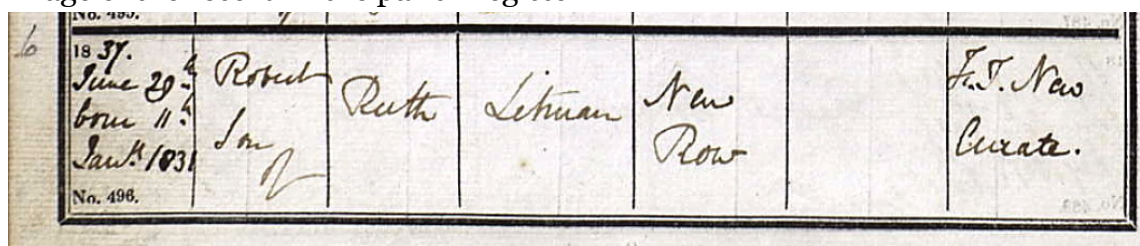 No. 495.
6
1837.
June 29th
born 11th
Jany 1831
No. 496.
Robert
Son
of
Ruth
Litman
New
Row
F. T. New
Curate.